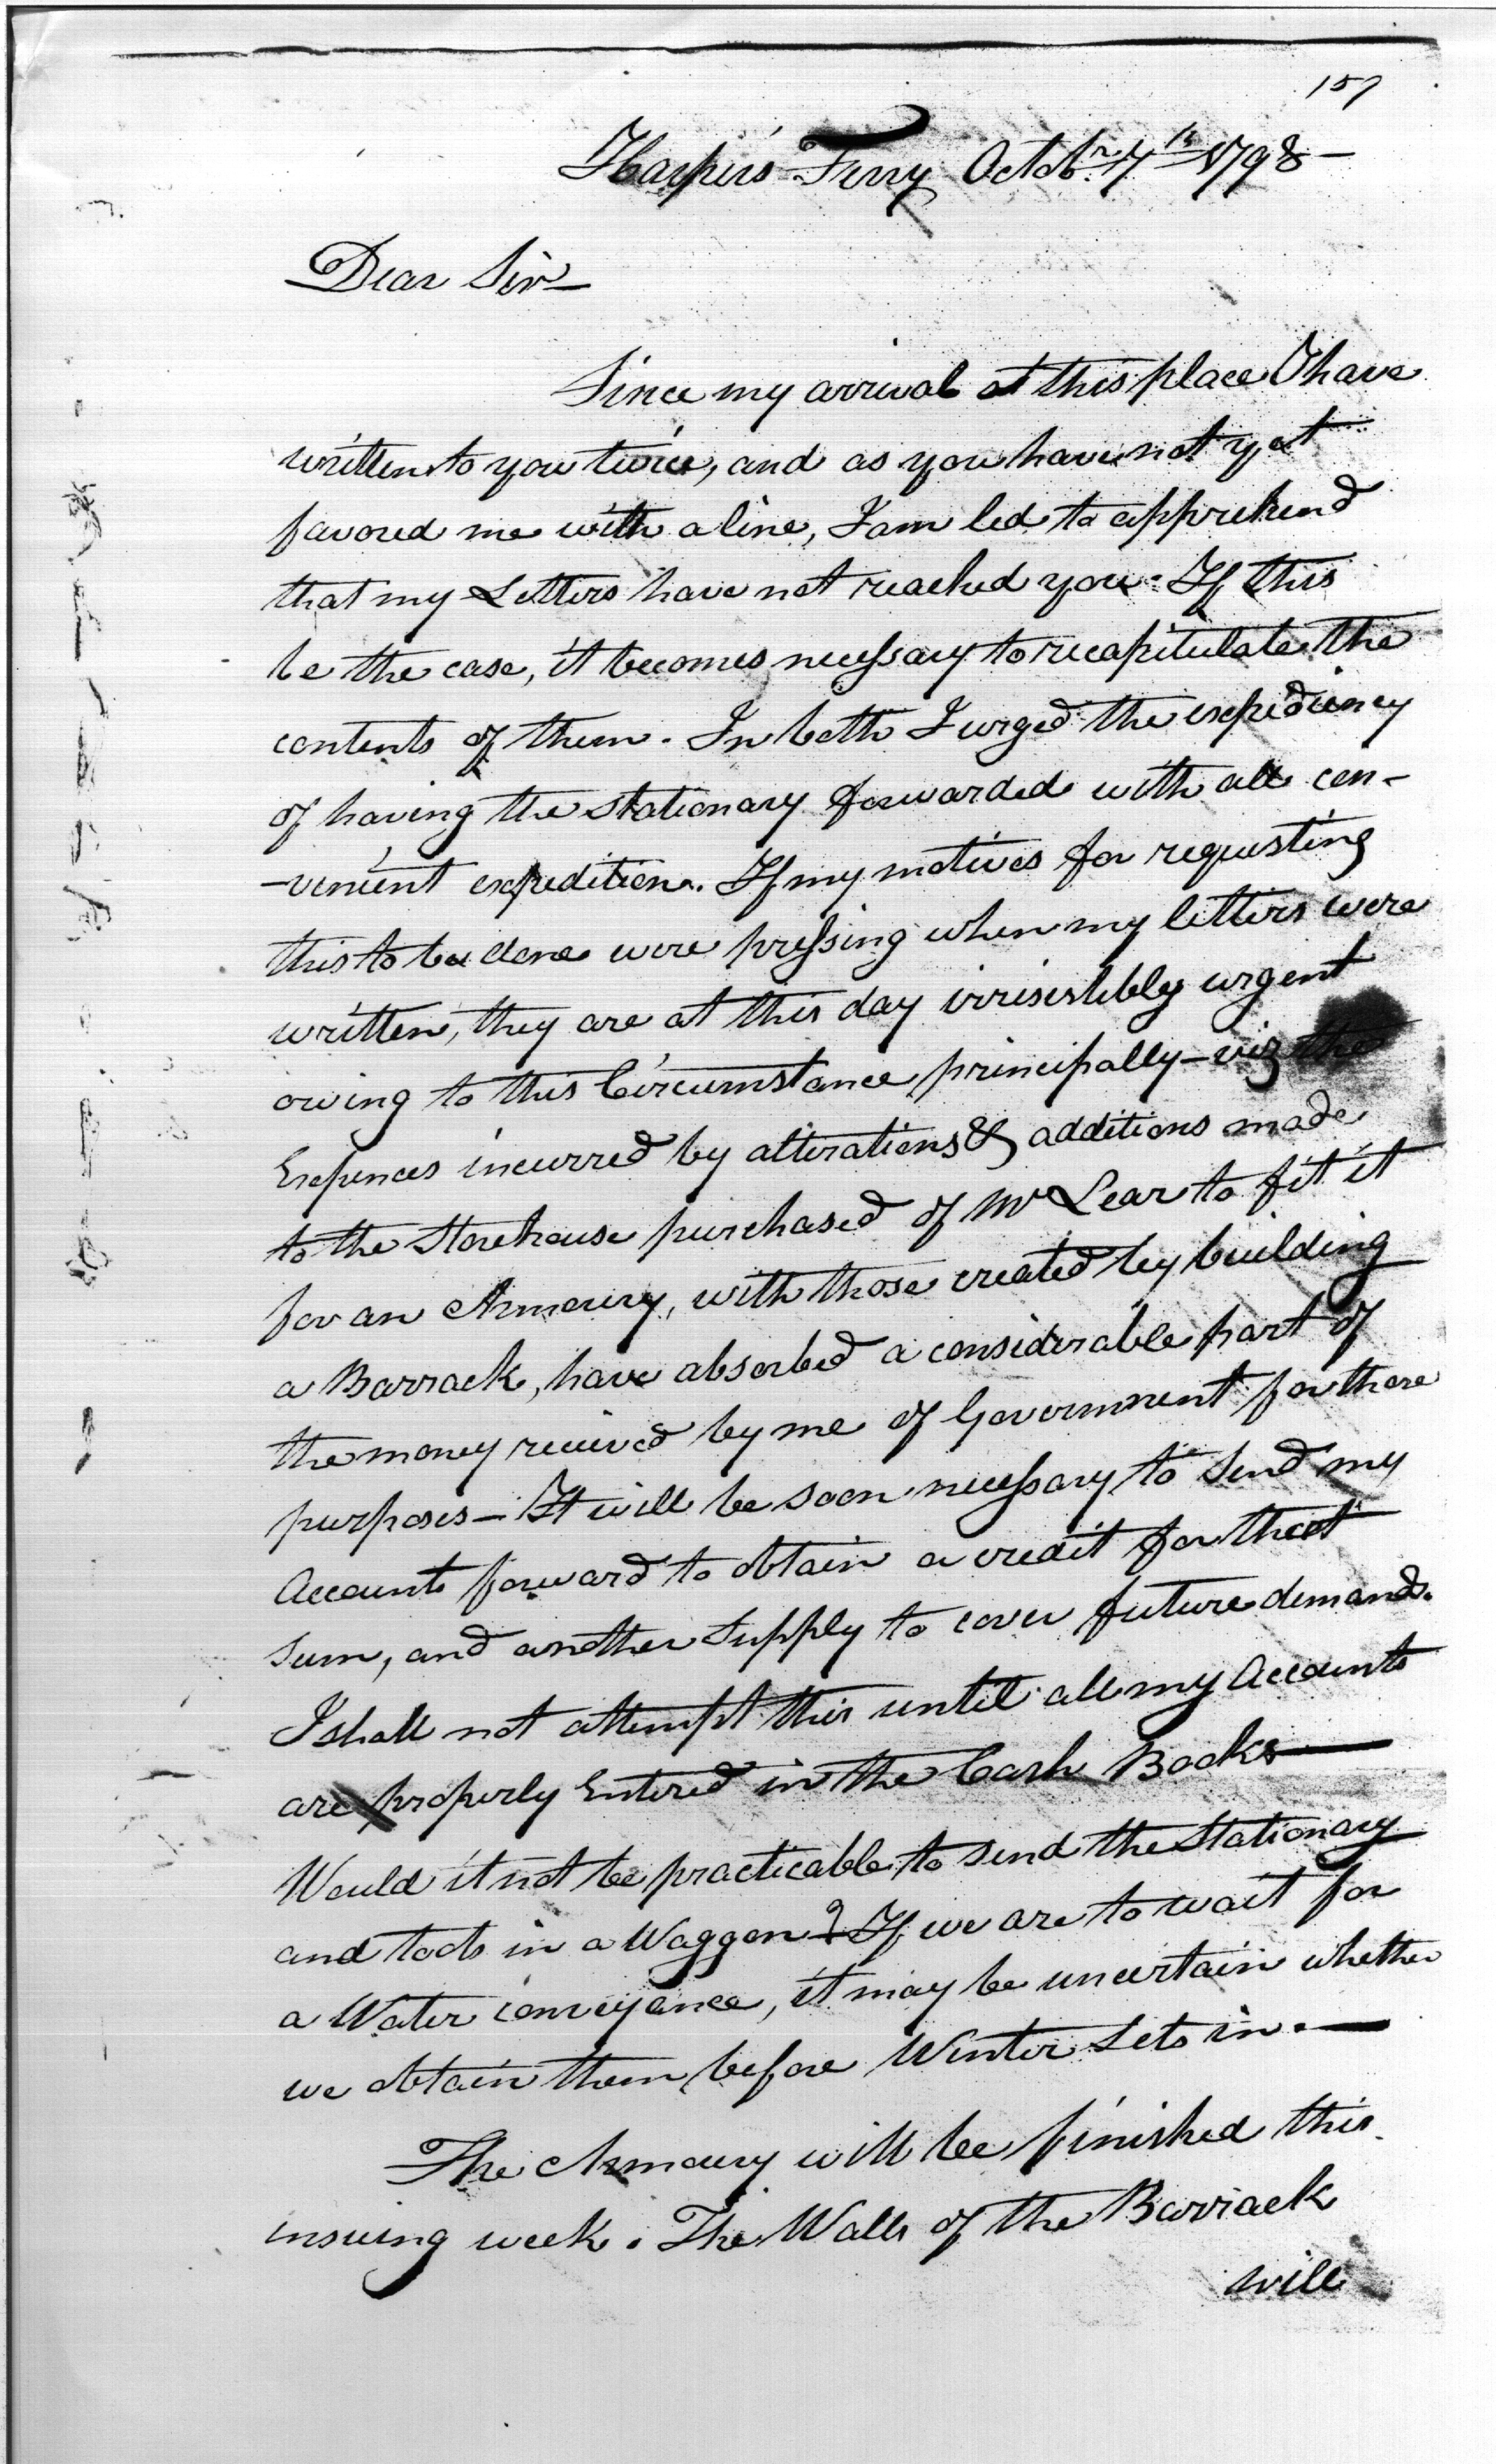 157
Harper's Ferry Octobr. 7th 1798 —
Dear Sir —
Since my arrival at this place I have
written to you twice, and as you have not yet
favored me with a line, I am led to apprehend
that my Letters have not reached you. If this
be the case, it becomes necessary to recapitulate the
contents of them. In both I urged the expediency
of having the stationary forwarded with all con-
-venient expedition. If my motives for requesting
this to be done were pressing when my letters were
written, they are at this day irresistibly urgent
owing to this Circumstance principally — viz the
Expences incurred by alterations & additions made
to the Storehouse purchased of Mr Lear to fit it
for an Armoury, with those created by building
a Barrack, have absorbed a considerable part of
the money received by me of Government for those
purposes — It will be soon necessary to send my
Accounts forward to obtain a credit for that
sum, and another Supply to cover future demands.
I shall not attempt this until all my Accounts
are properly Entered in the Cash Books —
Would it not be practicable to send the Stationary
and tools in a Waggon? If we are to wait for
a Water conveyance, it may be uncertain whether
we obtain them before Winter Sets in. —
The Armoury will be finished this
insuing week. The Walls of the Barrack
will